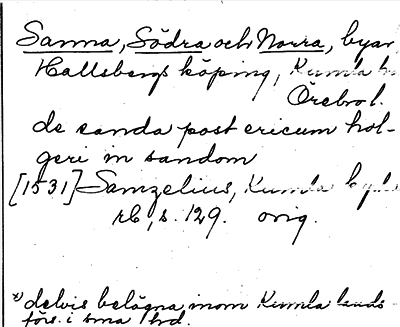 Sanna, Södra och Norra, byar
Hallsbergs köping, Kumla
Örebro l.
de sanda post ericum hol-
geri in sandom
[1531] Samzelius, Kumla
rb, s. 129. orig.
x) delvis belägna inom Kumla lands
förs. i sma hd.